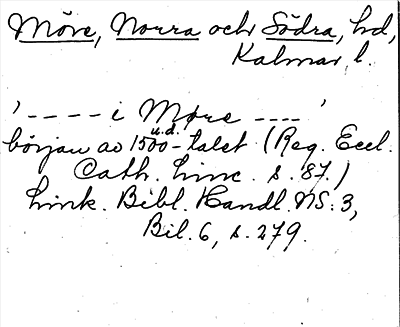 Möre, Norra och Södra, hd,
Kalmar l.
'---- i Møre ----'
u.d.
början av 1500-talet (Reg. Eccl.
Cath. Linc. s. 87.)
Link. Bibl. Handl. NS: 3,
Bil. 6, s. 279.